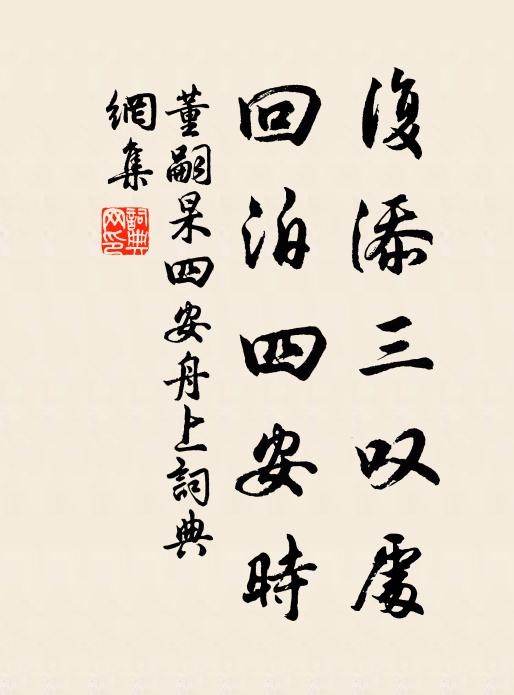 復添三叹處
回泊四安時
董嗣杲四安舟上詞典
網集
詞典網印